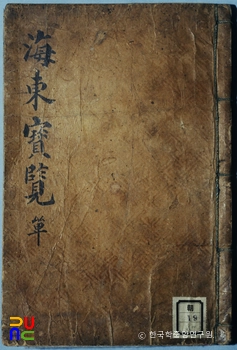 海東寶覽 單
朝
19
© 한국학중앙연구원